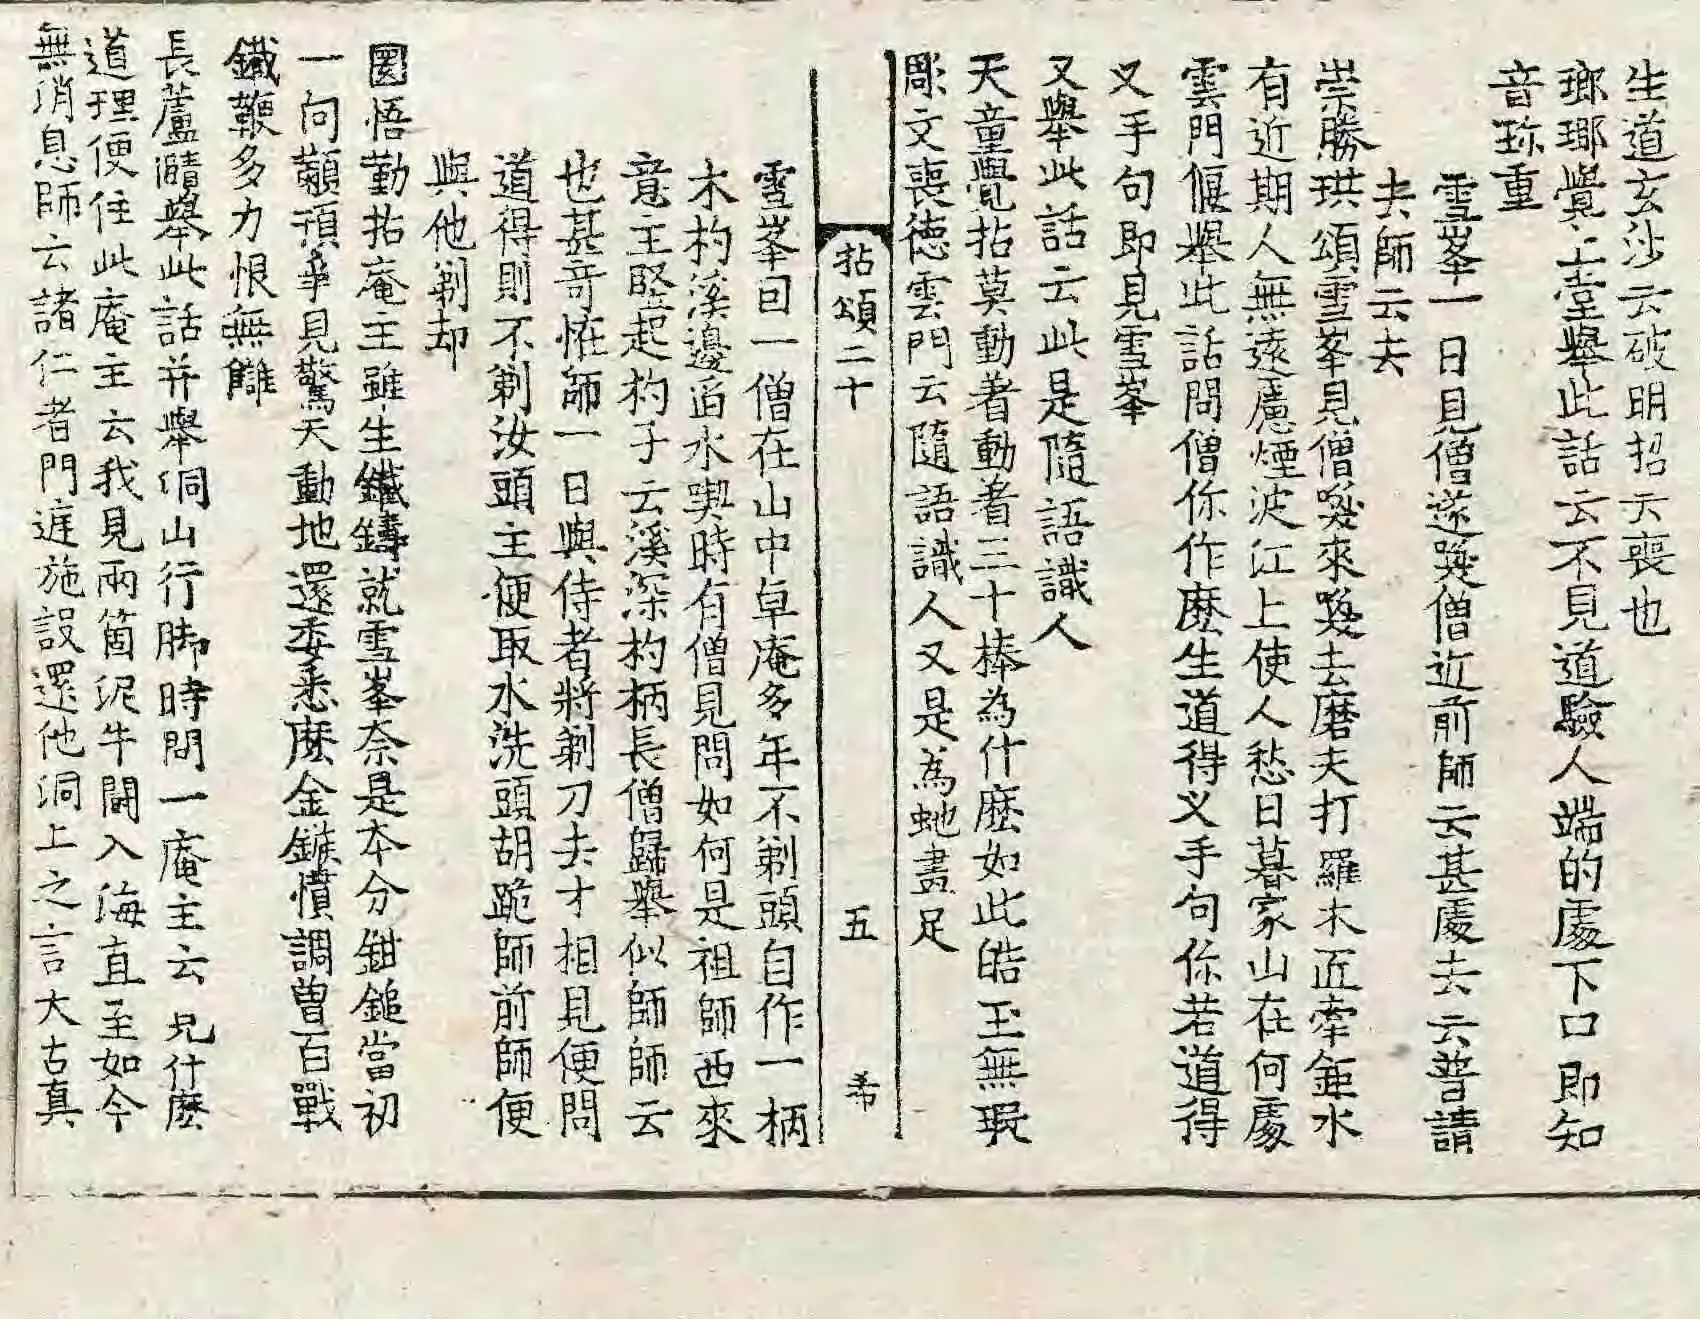 生道玄沙云破明招云喪也
瑯瑘覺上堂舉此話云不見道驗人端的處下口即知
音珎重
雪峯一日見僧遂喚僧近前師云甚處去云普請
去師云去
崇勝珙頌雪峯見僧喚來喚去磨夫打羅木匠牽鉅水
有近期人無遠慮煙波江上使人愁日暮家山在何處
雲門偃舉此話問僧你作麽生道得义手句你若道得
义手句即見雪峯
又舉此話云此是隨語識人
天童覺拈莫動着動着三十棒為什麽如此皓玉無瑕
彫文喪德雲門云隨語識人又是為虵畫足
拈頌二十 五 希
雪峯曰一僧在山中卓庵多年不剃頭自作一柄
木杓溪邊舀水喫時有僧見問如何是祖師西來
意主竪起杓子云溪深杓柄長僧歸舉似師師云
也甚竒恠師一日與侍者將剃刀去才相見便問
道得則不剃汝頭主便取水洗頭胡跪師前師便
與他剃却
圜悟勤拈庵主雖生鐵鑄就雪峯奈是本分鉗鎚當初
一向顢頇爭見驚天動地還委悉麽金鏃慣調曽百戰
鐵鞭多力恨無讎
長蘆賾舉此話并舉洞山行脚時問一庵主云見什麽
道理便住此庵主云我見兩箇泥牛鬪入海直至如今
無消息師云諸仁者門庭施設還他洞上之言大古真